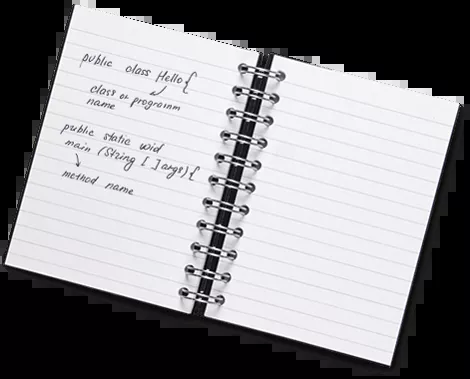 public class Hello{
class or programm
name
public static void
main (String [ ] args){
method name